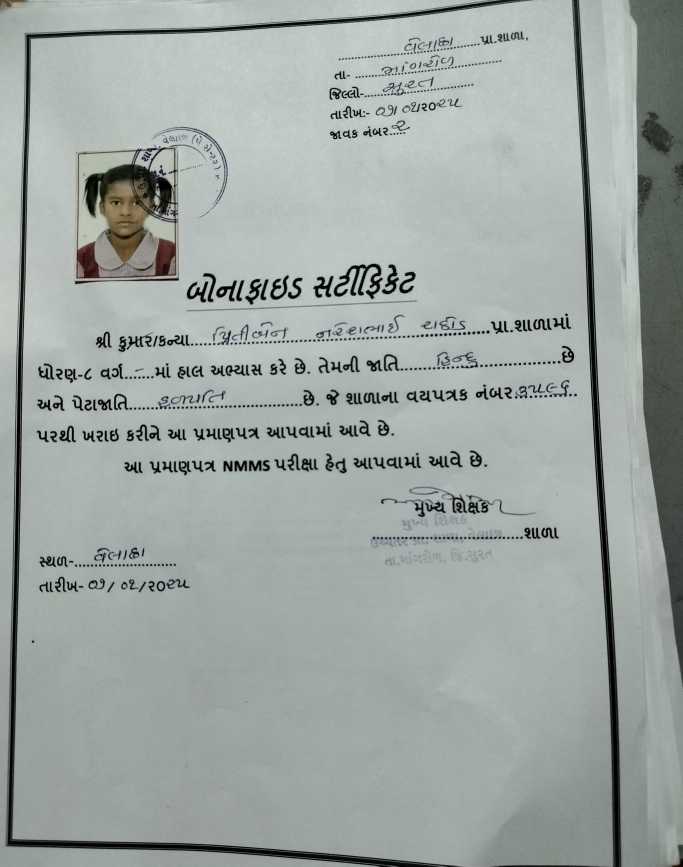 વેલાછા પ્રા.શાળા,
તા- માંગરોળ
જિલ્લો- સુરત
તારીખ:- ૦૧/૦૨/૨૦૨૫
જાવક નંબર ૨
બોનાફાઇડ સર્ટીફિકેટ
શ્રી કુમાર/કન્યા પ્રિતીબેન નરેશભાઈ રાઠોડ પ્રા.શાળામાં
ધોરણ-૮ વર્ગ - માં હાલ અભ્યાસ કરે છે. તેમની જાતિ હિન્દુ છે
અને પેટાજાતિ હળપતિ છે. જે શાળાના વયપત્રક નંબર
પરથી ખરાઇ કરીને આ પ્રમાણપત્ર આપવામાં આવે છે.
આ પ્રમાણપત્ર NMMS પરીક્ષા હેતુ આપવામાં આવે છે.
મુખ્ય શિક્ષક
મુખ્ય શિક્ષક
શાળા
તા.માંગરોળ, જિ.સુરત
સ્થળ- વેલાછા
તારીખ- ૦૧/૦૨/૨૦૨૫